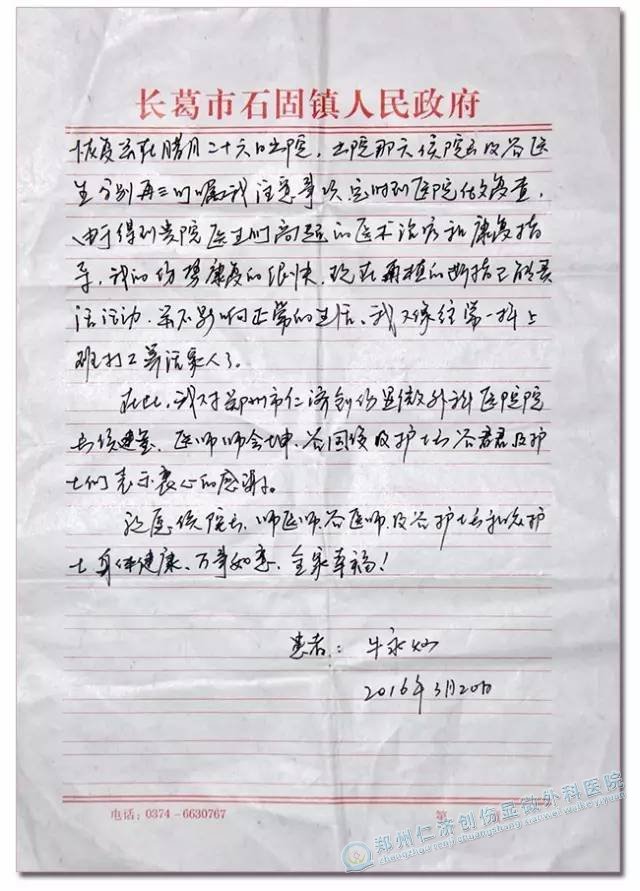 长葛市石固镇人民政府
恢复于腊月二十六日出院,出院那天侯院长及谷医
生分别再三叮嘱我注意事项定时到医院做复查,
由于得到贵院医生们高超的医术治疗和康复指
导,我的伤势康复的很快,现在再植的断指已能灵
活活动,并不影响正常的生活、我又像往常一样上
班打工养活家人了。
在此,我对郑州市仁济创伤显微外科医院院
长侯建玺、医师师会坤、谷国俊及护士长谷君君及护
士们表示衷心的感谢。
祝愿侯院长、师医师、谷医师、及谷护士长和众护
士身体健康、万事如意、全家幸福!
患者:牛永
2016年3月20日
电话:0374-6630767
第
郑州仁济创伤显微外科医院
zhengzhou renji chuangshang xianwei waike yiyuan